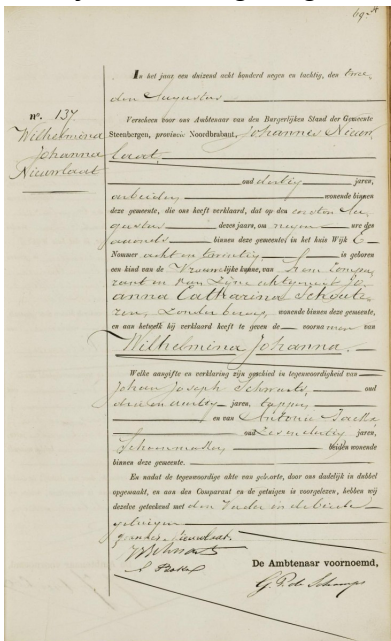 69.
In het jaar een duizend acht honderd negen en tachtig, den twee
den Augustus
n°. 137.
Verscheen voor ons Ambtenaar van den Burgerlijken Stand der Gemeente
Wilhelmina
Johanna
Nieuwlaat
Steenbergen, provincie Noordbrabant, Johannes Nieuw
laat,
oud dertig jaren,
arbeider wonende binnen
deze gemeente, die ons heeft verklaard, dat op den eersten Au
gustus dezes jaars, om negen ure des
avonds binnen deze gemeente in het huis Wijk E
Nommer acht en twintig is geboren
een kind van de Vrouwelijke kunne, van hem Compa
rant en van zijne echtgenoot Jo
anna Catharina Schout
zen, zonder beroep, wonende binnen deze gemeente,
en aan hetwelk hij verklaard heeft te geven de voornamen van
Wilhelmina Johanna.
Welke aangifte en verklaring zijn geschied in tegenwoordigheid van
Johan Joseph oud
drie en veertig jaren, tapper,
en van Antonie
oud zes en dertig jaren,
Schoenmaker, beiden wonende
binnen deze gemeente.
En nadat de tegenwoordige akte van geboorte, door ons dadelijk in dubbel
opgemaakt, en aan den Comparant en de getuigen is voorgelezen, hebben wij
dezelve geteekend met den Vader en de beide
getuigen
Nieuwlaat.
De Ambtenaar voornoemd,